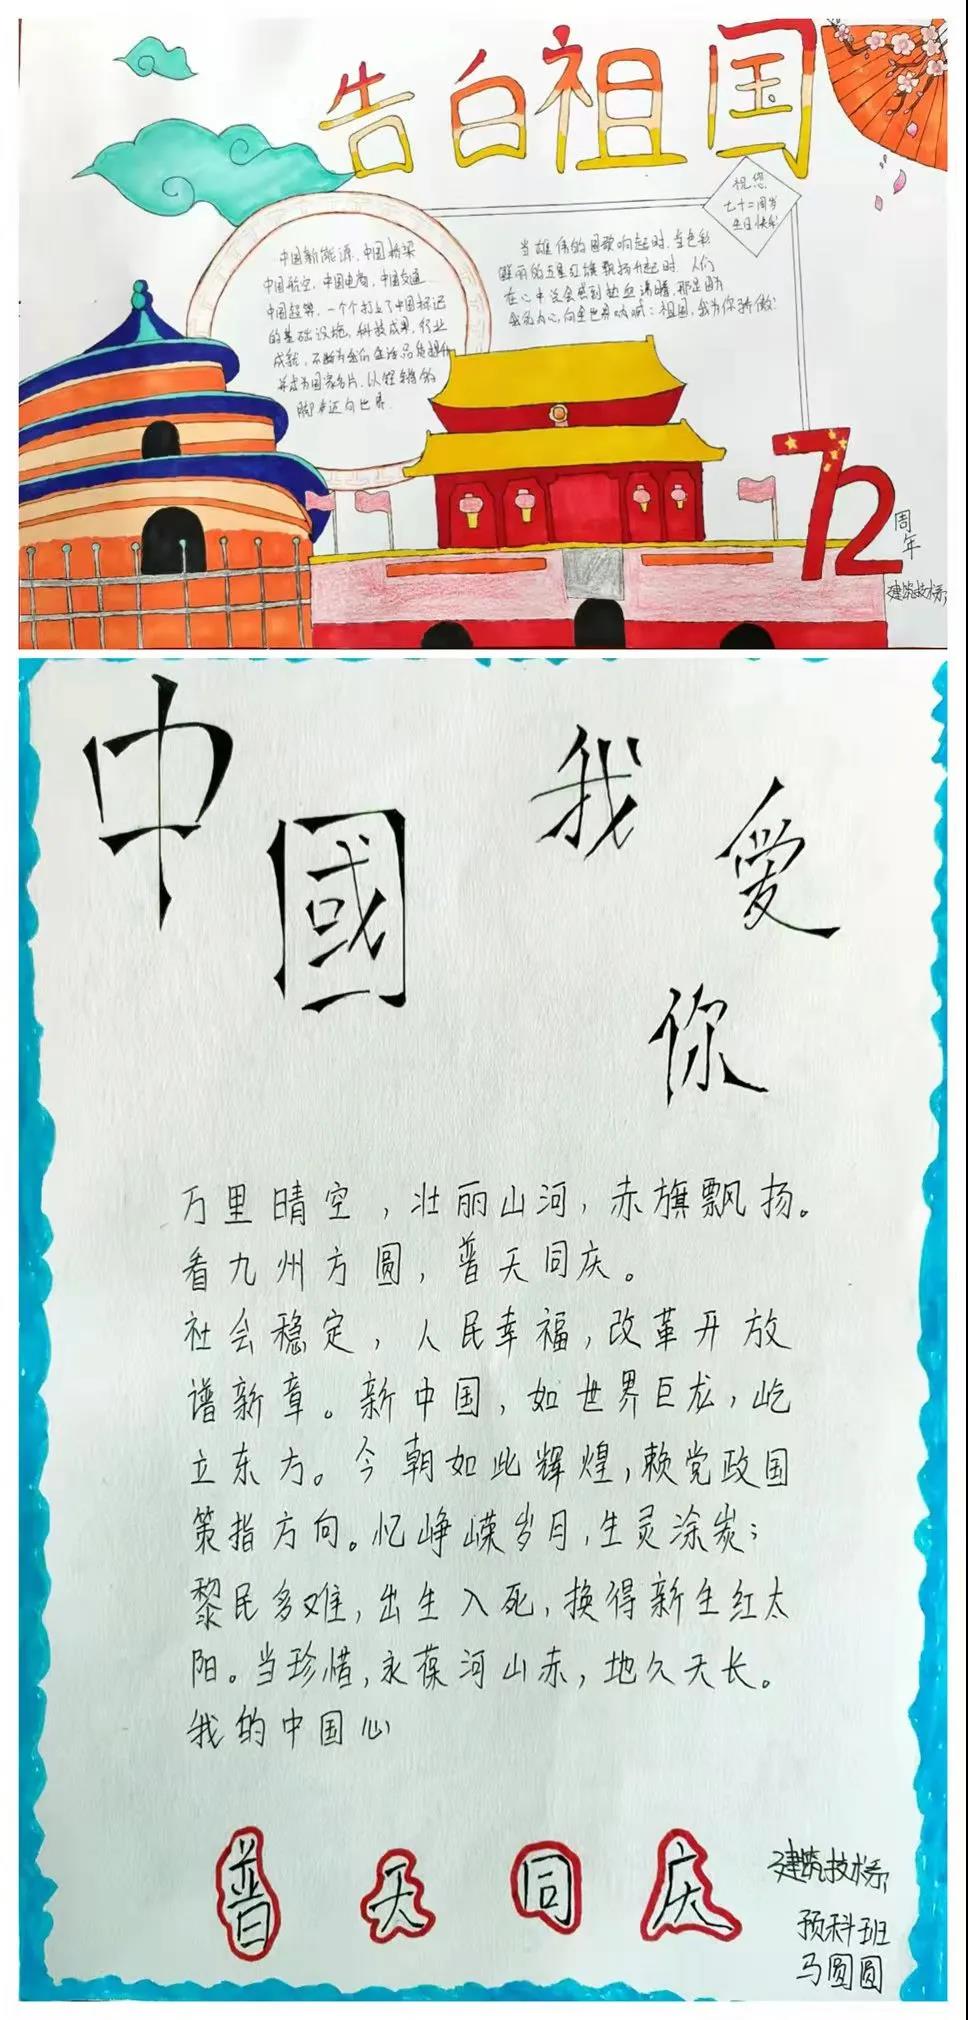 告白祖国
祝您
七十二周岁
生日快乐
中国新能源,中国桥梁
中国航空,中国电商,中国交通
中国超算,一个个打上了中国标记
的基础设施,科技成果,行业
成就,不断为我们生活品质提升
并成为国家名片,以铿锵的
脚步迈向世界.
当雄伟的国歌响起时,当色彩
鲜丽的五星红旗飘扬升起时,人们
在心中总会感到热血沸腾,那是因为
我会内心向全世界呐喊:祖国,我为你骄傲!
72
周年
建筑技术系
中國
我爱你
万里晴空,壮丽山河,赤旗飘扬。
看九州方圆,普天同庆。
社会稳定,人民幸福,改革开放
谱新章。新中国,如世界巨龙,屹
立东方。今朝如此辉煌,赖党政国
策指方向。忆峥嵘岁月,生灵涂炭;
黎民多难,出生入死,换得新生红太
阳。当珍惜,永葆河山赤,地久天长。
我的中国心
普天同庆
建筑技术系
预科班
马圆圆